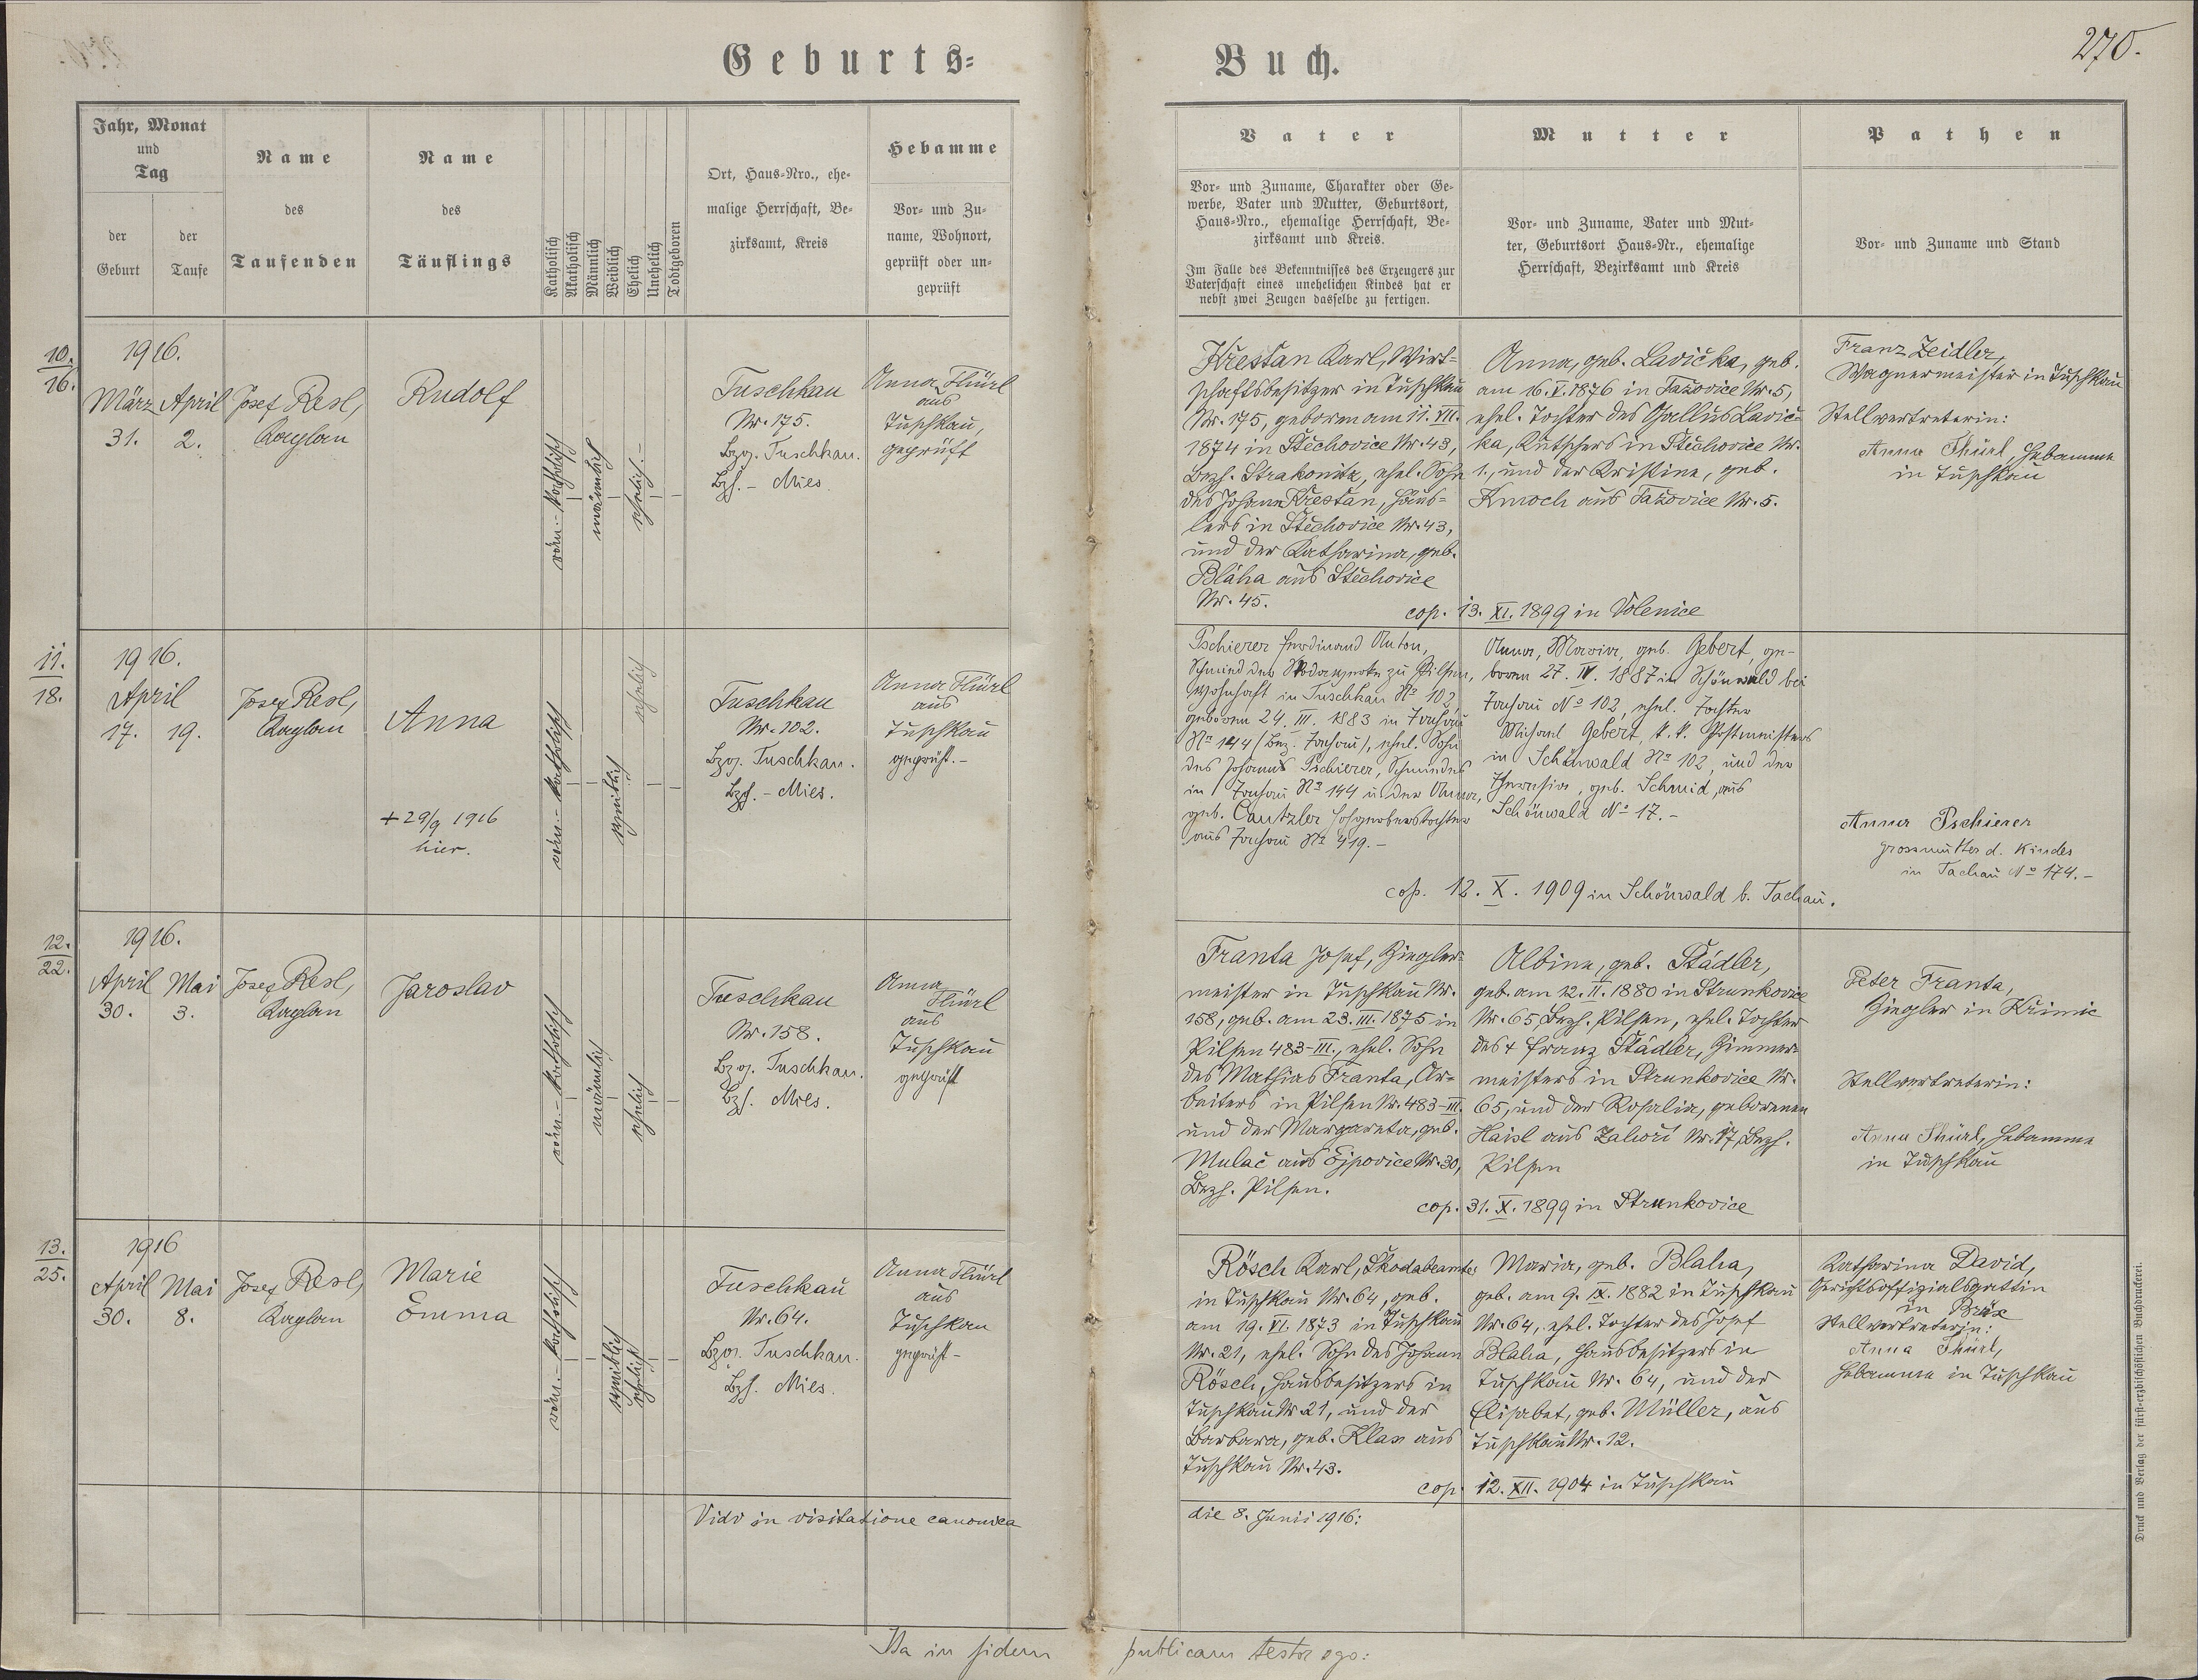 270.
Geburts-
Buch.
Jahr, Monat
und
Tag
der
Geburt
der
Taufe
Name
des
Taufenden
Name
des
Täuflings
Katholisch
Akatholisch
Männlich
Weiblich
Ehelich
Unehelich
Todtgeboren
Ort, Haus-Nro., ehe-
malige Herrschaft, Be-
zirksamt, Kreis
Hebamme
Vor- und Zu-
name, Wohnort,
geprüft oder un-
geprüft
Vater
Vor- und Zuname, Charakter oder Ge-
werbe, Vater und Mutter, Geburtsort,
Haus-Nro., ehemalige Herrschaft, Be-
zirksamt und Kreis.
Im Falle des Bekenntnisses des Erzeugers zur
Vaterschaft eines unehelichen Kindes hat er
nebst zwei Zeugen dasselbe zu fertigen.
Mutter
Vor- und Zuname, Vater und Mut-
ter, Geburtsort Haus-Nr., ehemalige
Herrschaft, Bezirksamt und Kreis
Pathen
Vor- und Zuname und Stand
10.
16.
1916.
März April
31. 2.
Josef Resl,
Kaplan
Rudolf
röm.-katholisch
männlich
ehelich.-
Tuschkau
Nr. 175.
Bzg. Tuschkau.
Bzh.- Mies.
Anna Thürl
aus
Tuschkau,
geprüft
Křestan Karl, Wirt-
schaftsbesitzer in Tuschkau
Nr. 175, geboren am 11. VII.
1874 in Stěchovice Nr. 43,
Bezh. Strakonitz, ehel. Sohn
des Johann Křestan, Häus-
lers in Stěchovice Nr. 43,
und der Katharina, geb.
Bláha aus Stěchovice
Nr. 45.
Anna, geb. Lavička, geb.
am 16. V. 1876 in Tažovice Nr. 5,
ehel. Tochter des Gallus Lavič-
ka, Kutschers in Stěchovice Nr.
1., und der Kristine, geb.
Kmoch aus Tažovice Nr. 5.
cop. 13. XI. 1899 in Volenice
Franz Zeidler,
Wagnermeister in Tuschkau
Stellvertreterin:
Anna Thürl, Hebamme
in Tuschkau
11.
18.
1916.
April
17. 19.
Josef Resl,
Kaplan
Anna
+ 29/9 1916
hier.
röm.-katholisch
weiblich
ehelich
Tuschkau
Nr. 102.
Bzg. Tuschkau.
Bzh.- Mies.
Anna Thürl
aus
Tuschkau
geprüft.-
Pschierer Ferdinand Anton,
Schmied der Skodawerke zu Pilsen,
wohnhaft in Tuschkau No 102,
geboren 24. III. 1883 in Tachau
No 144 (Bez. Tachau), ehel. Sohn
des Johann Pschierer, Schmiedes
in Tachau No 144 u. der Anna,
geb. Cantzler
aus Tachau No 419.-
Anna, Maria, geb. Gebert, ge-
boren 27. IV. 1887 in Schönwald bei
Tachau No 102, ehel. Tochter
Michael Gebert, k. k. Postmeisters
in Schönwald No 102, und der
Theresia, geb. Schmid, aus
Schönwald No 17.-
cop. 12. X. 1909 in Schönwald b. Tachau.
Anna Pschierer
Grossmutter d. Kindes
in Tachau No 174.-
12.
22.
1916.
April Mai
30. 3.
Josef Resl,
Kaplan
Jaroslav
röm.-katholisch
männlich
ehelich
Tuschkau
Nr. 158.
Bzg. Tuschkau.
Bzh. Mies.
Anna
Thürl
aus
Tuschkau
geprüft
Franta Josef, Ziegler-
meister in Tuschkau Nr.
158, geb. am 23. III. 1875 in
Pilsen 483-III., ehel. Sohn
des Mathias Franta, Ar-
beiters in Pilsen Nr. 483-III.
und der Margareta, geb.
Mulač aus Ejpovice Nr. 30,
Bezh. Pilsen.
Albine, geb. Städler,
geb. am 12. II. 1880 in Strunkovice
Nr. 65, Bezh. Pilsen, ehel. Tochter
des + Franz Städler, Zimmer-
meisters in Strunkovice Nr.
65, und der Rosalia, geborenen
Haisl aus Zahoří Nr. 17, Bezh.
Pilsen
cop. 31. X. 1899 in Strunkovice
Peter Franta,
Ziegler in Křimic
Stellvertreterin:
Anna Thürl, Hebamme
in Tuschkau
13.
25.
1916
April Mai
30. 8.
Josef Resl,
Kaplan
Marie
Emma
röm.-katholisch
weiblich
ehelich
Tuschkau
Nr. 64.
Bzg. Tuschkau.
Bzh. Mies.
Anna Thürl
aus
Tuschkau
geprüft-
Rösch Karl, Skodabeamter
in Tuschkau Nr. 64, geb.
am 19. VI. 1873 in Tuschkau
Nr. 21, ehel. Sohn des Johann
Rösch, Hausbesitzers in
Tuschkau Nr. 21, und der
Barbara, geb. Klas aus
Tuschkau Nr. 43.
Maria, geb. Blaha,
geb. am 9. IX. 1882 in Tuschkau
Nr. 64, ehel. Tochter des Josef
Blaha, Hausbesitzers in
Tuschkau Nr. 64, und der
Elisabet, geb. Müller, aus
Tuschkau Nr. 12.
cop. 12. XII. 1904 in Tuschkau
Katharina David,
Gerichtsoffizialsgattin
in Brüx
Stellvertreterin:
Anna Thürl,
Hebamme in Tuschkau
Vidi in visitatione canonica
die 8. Junii 1916:
Ita in fidem
publicam testor ego:
Druck und Verlag der fürst-erzbischöflichen Buchdruckerei.